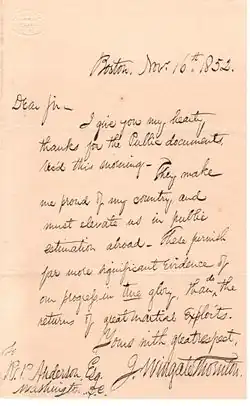 Boston, Nov. 16th. 1852.
Dear Sir—
I give you my hearty
thanks for the Public documents,
rec'd this morning— They make
me proud of my country, and
must elevate us in public
estimation abroad— These
far more significant Evidence of
our progress in true glory, than do the
returns of great martial Exploits.
Yours with great respect,
J. Wingate Thornton.
To
Anderson, Esq.
Washington, D.C.